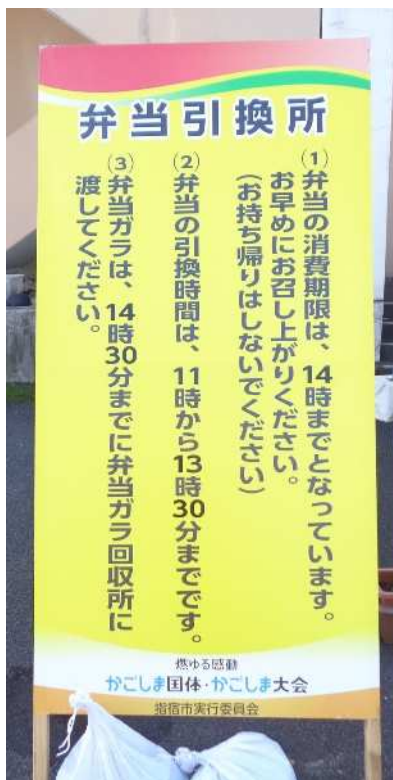 弁当引換所
(1)弁当の消費期限は、14時までとなっています。
お早めにお召し上がりください。
(お持ち帰りはしないでください)
(2)弁当の引換時間は、11時から13時30分までです。
(3)弁当ガラは、14時30分までに弁当ガラ回収所に
渡してください。
燃ゆる感動
かごしま国体・かごしま大会
指宿市実行委員会